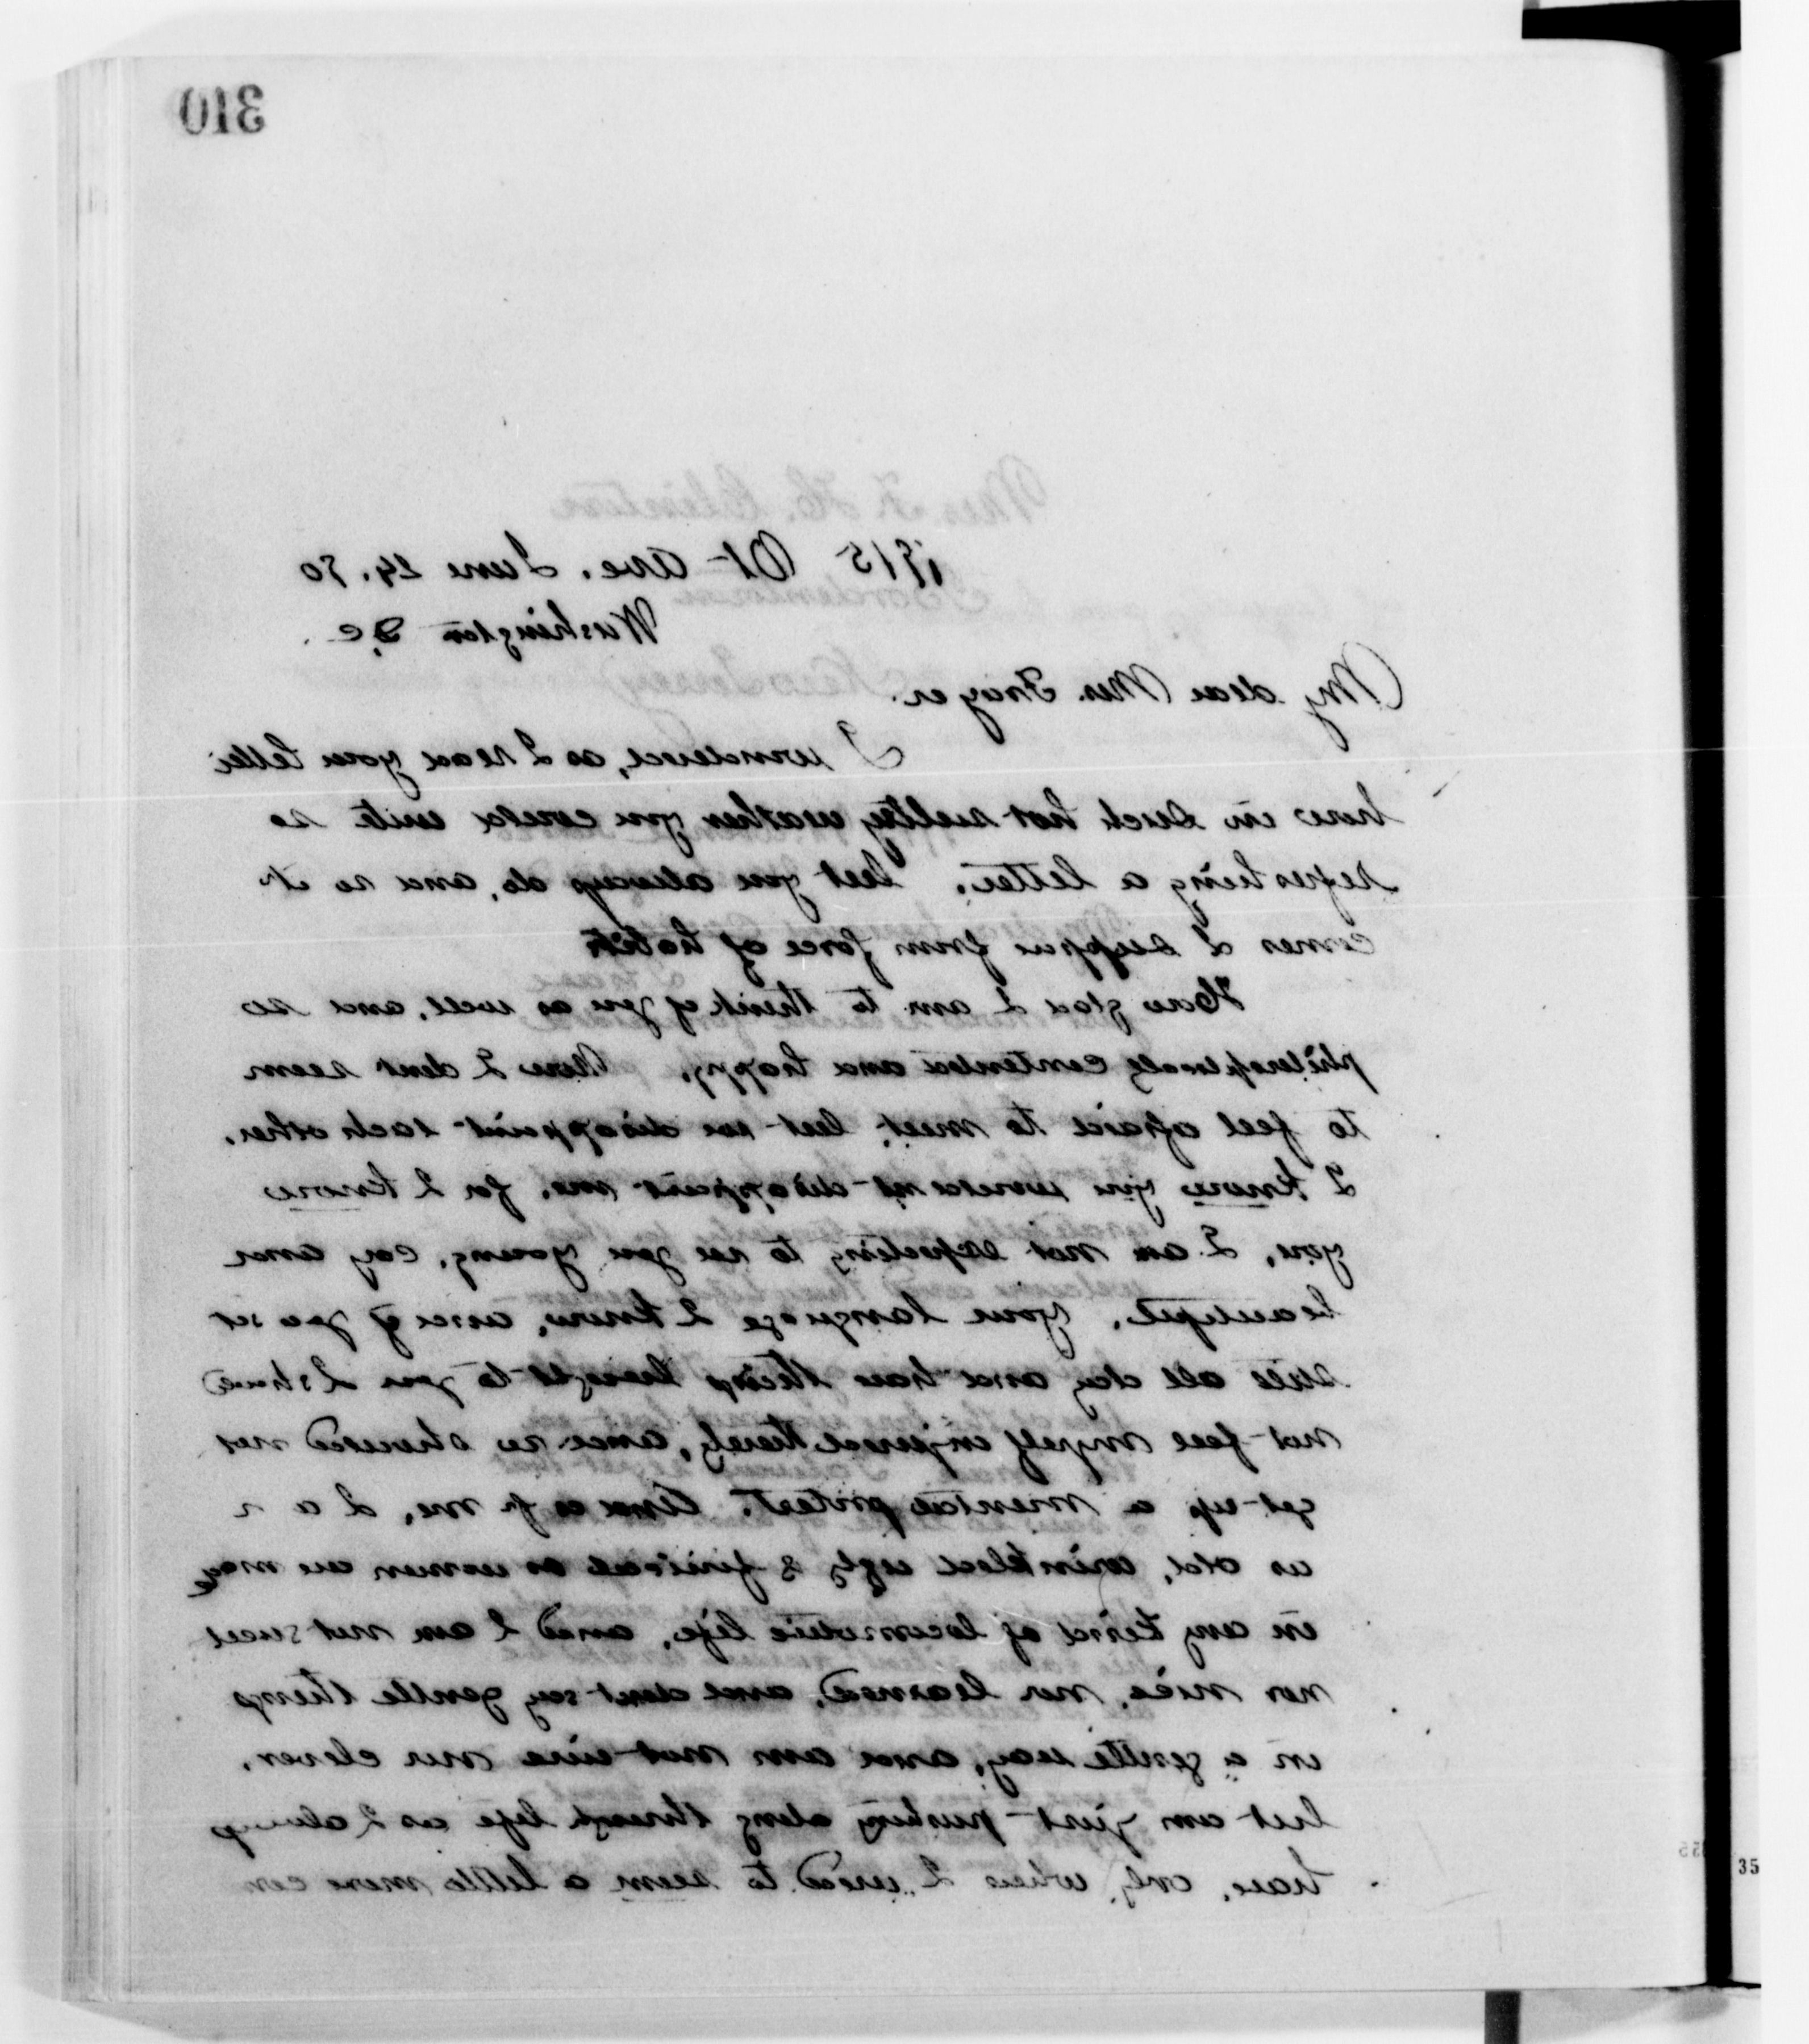 310
Mrs. F. H. Clinton
1915 Vt Ave. June 24. 80
Bordentown
Washington D.C.
New Jersey
My dear Mrs. Frazer.
I wondered, as I read your letter
how in such hot sultry weather you could write so
refreshing a letter. but you always do, and so it
comes I suppose from force of habit
How glad I am to think of you as well, and so
philosophically contented and happy. Now I dont seem
to feel afraid to meet, lest we disappoint each other.
I know you would not disappoint me. for I know
you, I am not expecting to see you young, gay and
beautiful. your language I know, and if you sit
still all day and have things brought to you I should
not feel myself injured thereby, and so should not
get up a mental protest. And as for me, I am
as old, wrinkled ugly & finished as women are made
in any kind of locomotive life, and I am not sweet
nor nice, nor learned, and dont say gentle things
in a gentle way, and am not wise nor clever,
but am just pushing along through life as I always
have, only, when I used to seem a little more con
35